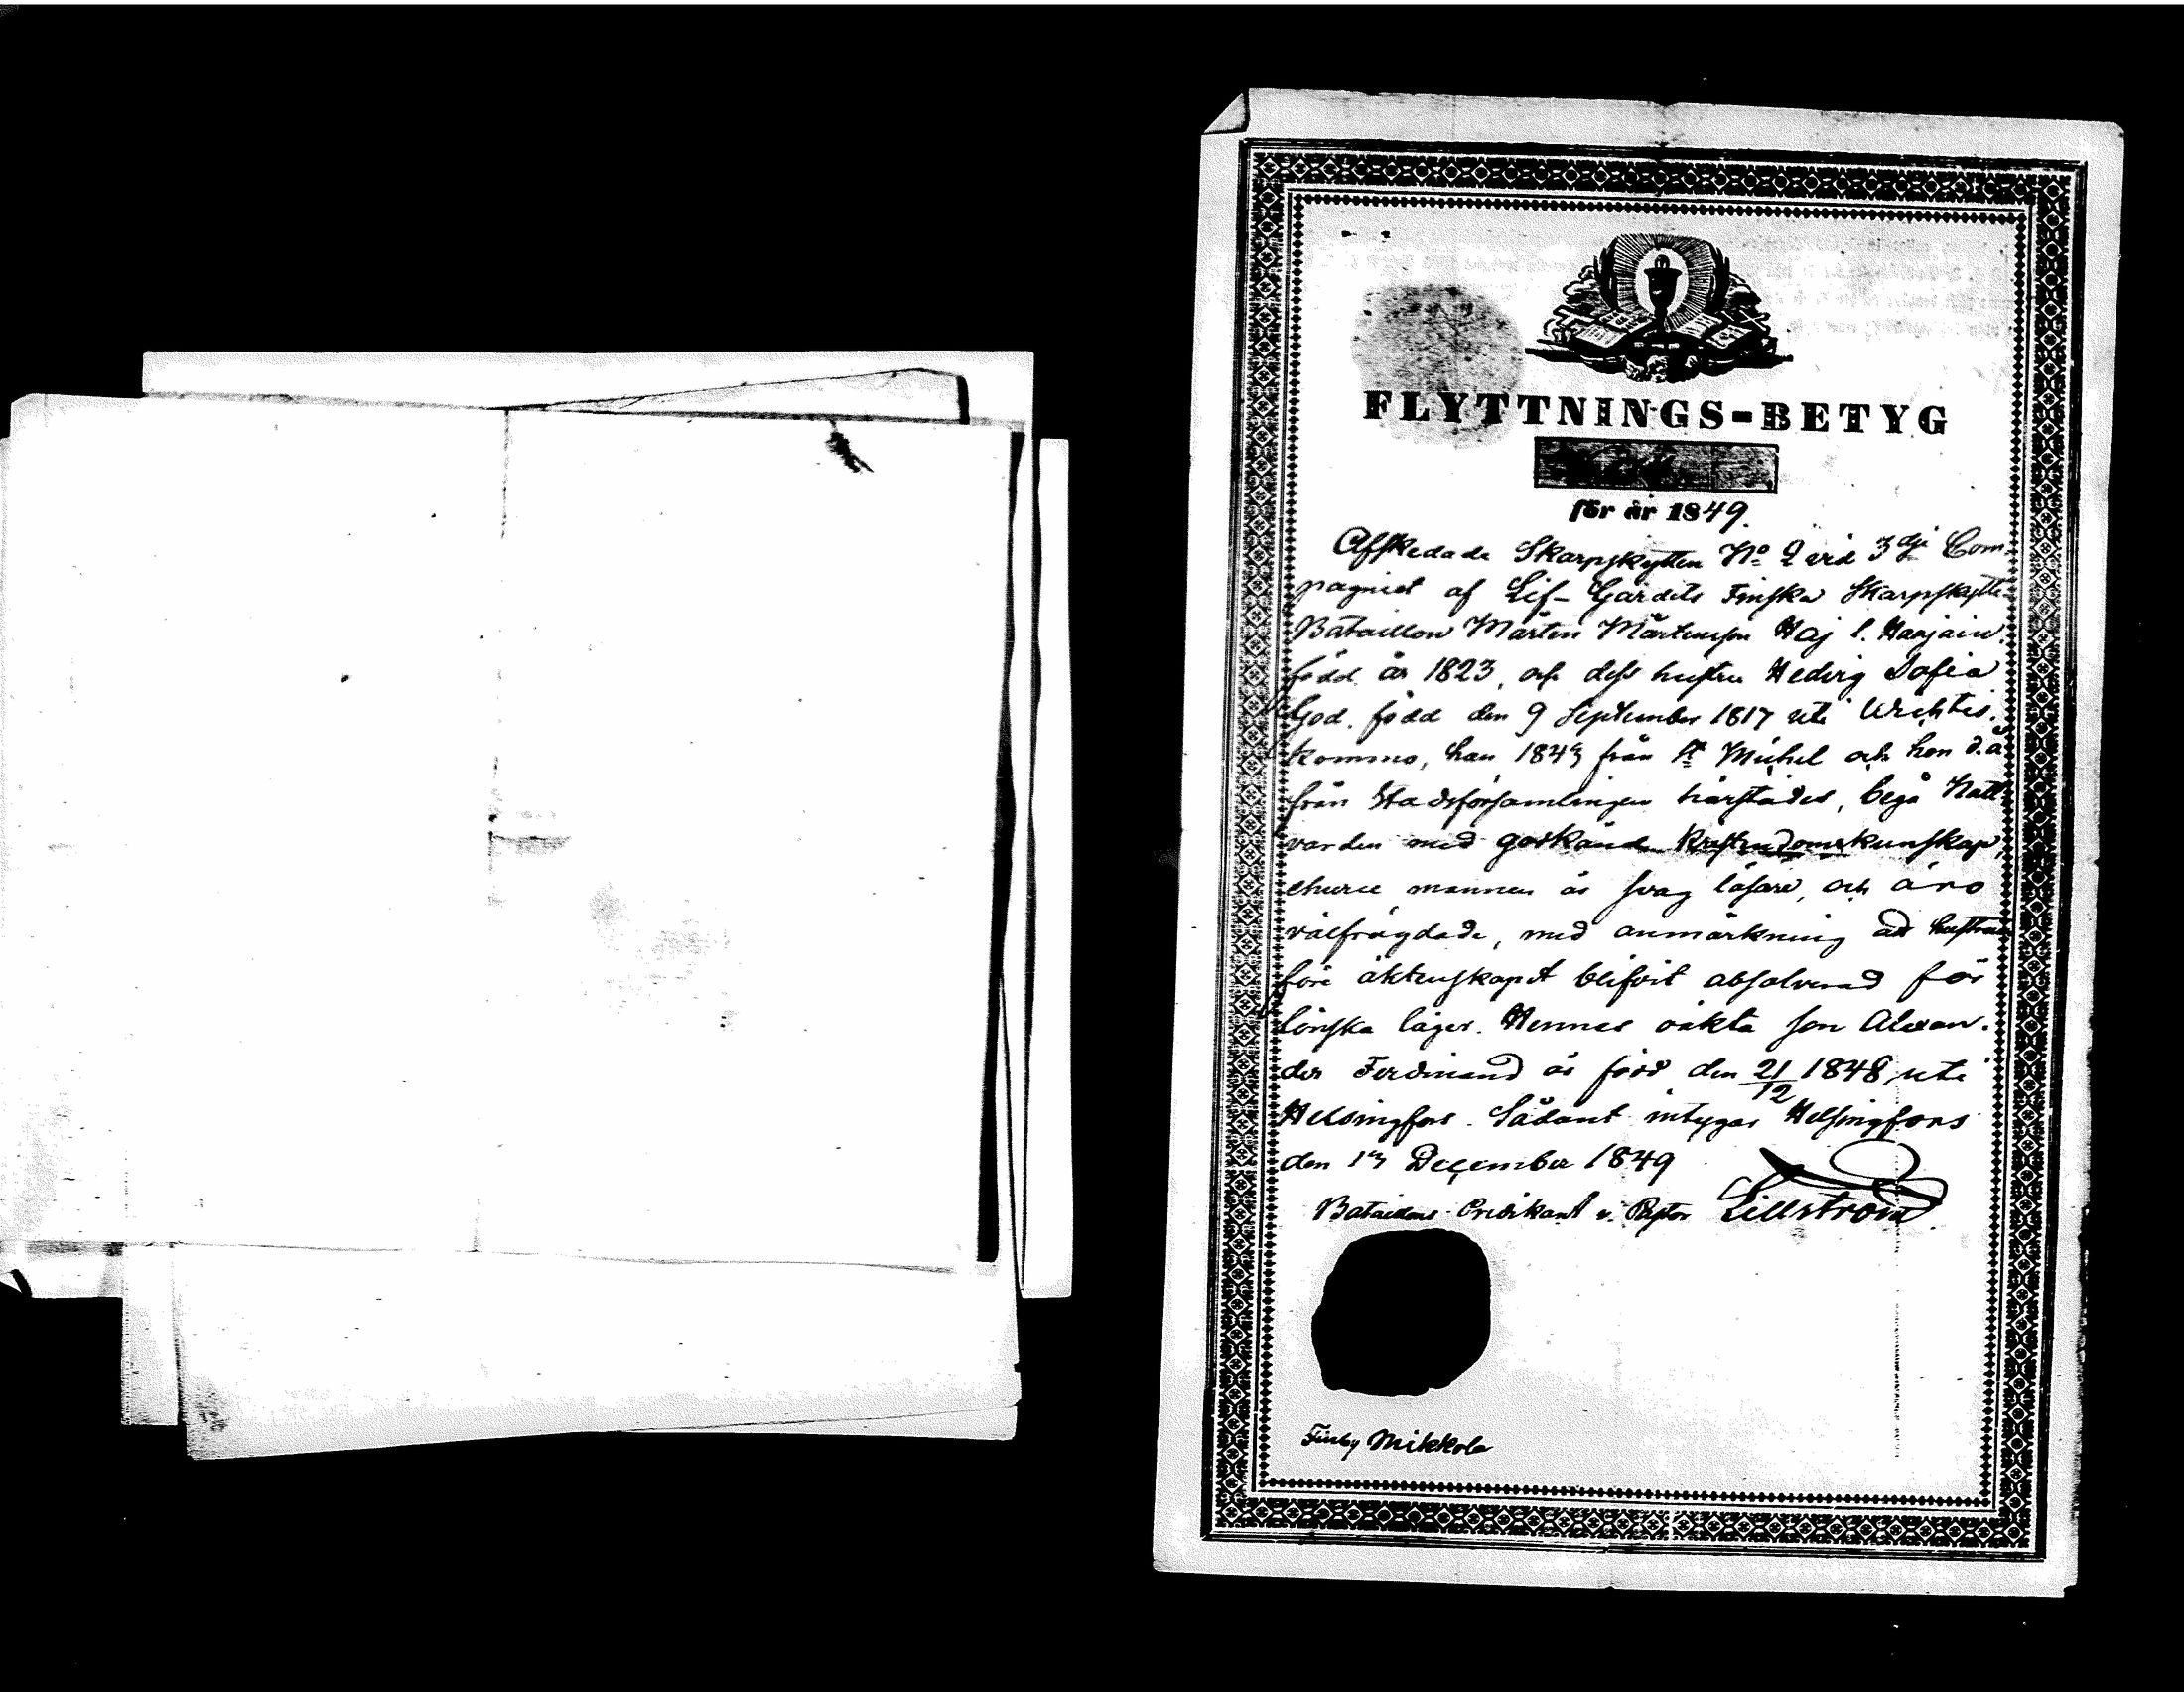 FLYTTNINGS-BETYG
för år 1849.
Afskedade Skarpskytten No 2 vid 3dje Com-
pagniet af Lif-Gardets Finska Skarpskytte-
Bataillon Mårten Mårtensson Haj l. Haajain.
född år 1823, och dess hustru Hedvig Sofia
God. född den 9 September 1817 uti Wichtis.
komne, han 1843 från St Michel och hon d.å
från Stadsförsamlingen härstädes, begå Natt-
varden med godkänd Kristendomskunskap,
ehuru mannen är svag läsare, och äro
välfrägdade, med anmärkning att hustrun
före äktenskapet blifvit absolverad för
lönska läger. Hennes oäkta son Alexan-
der Ferdinand är född den 21/12 1848 uti
Helsingfors. Sådant intygar Helsingfors
den 17 December 1849
Bataillons Predikant v. Pastor Lillström
Finby Mikkola